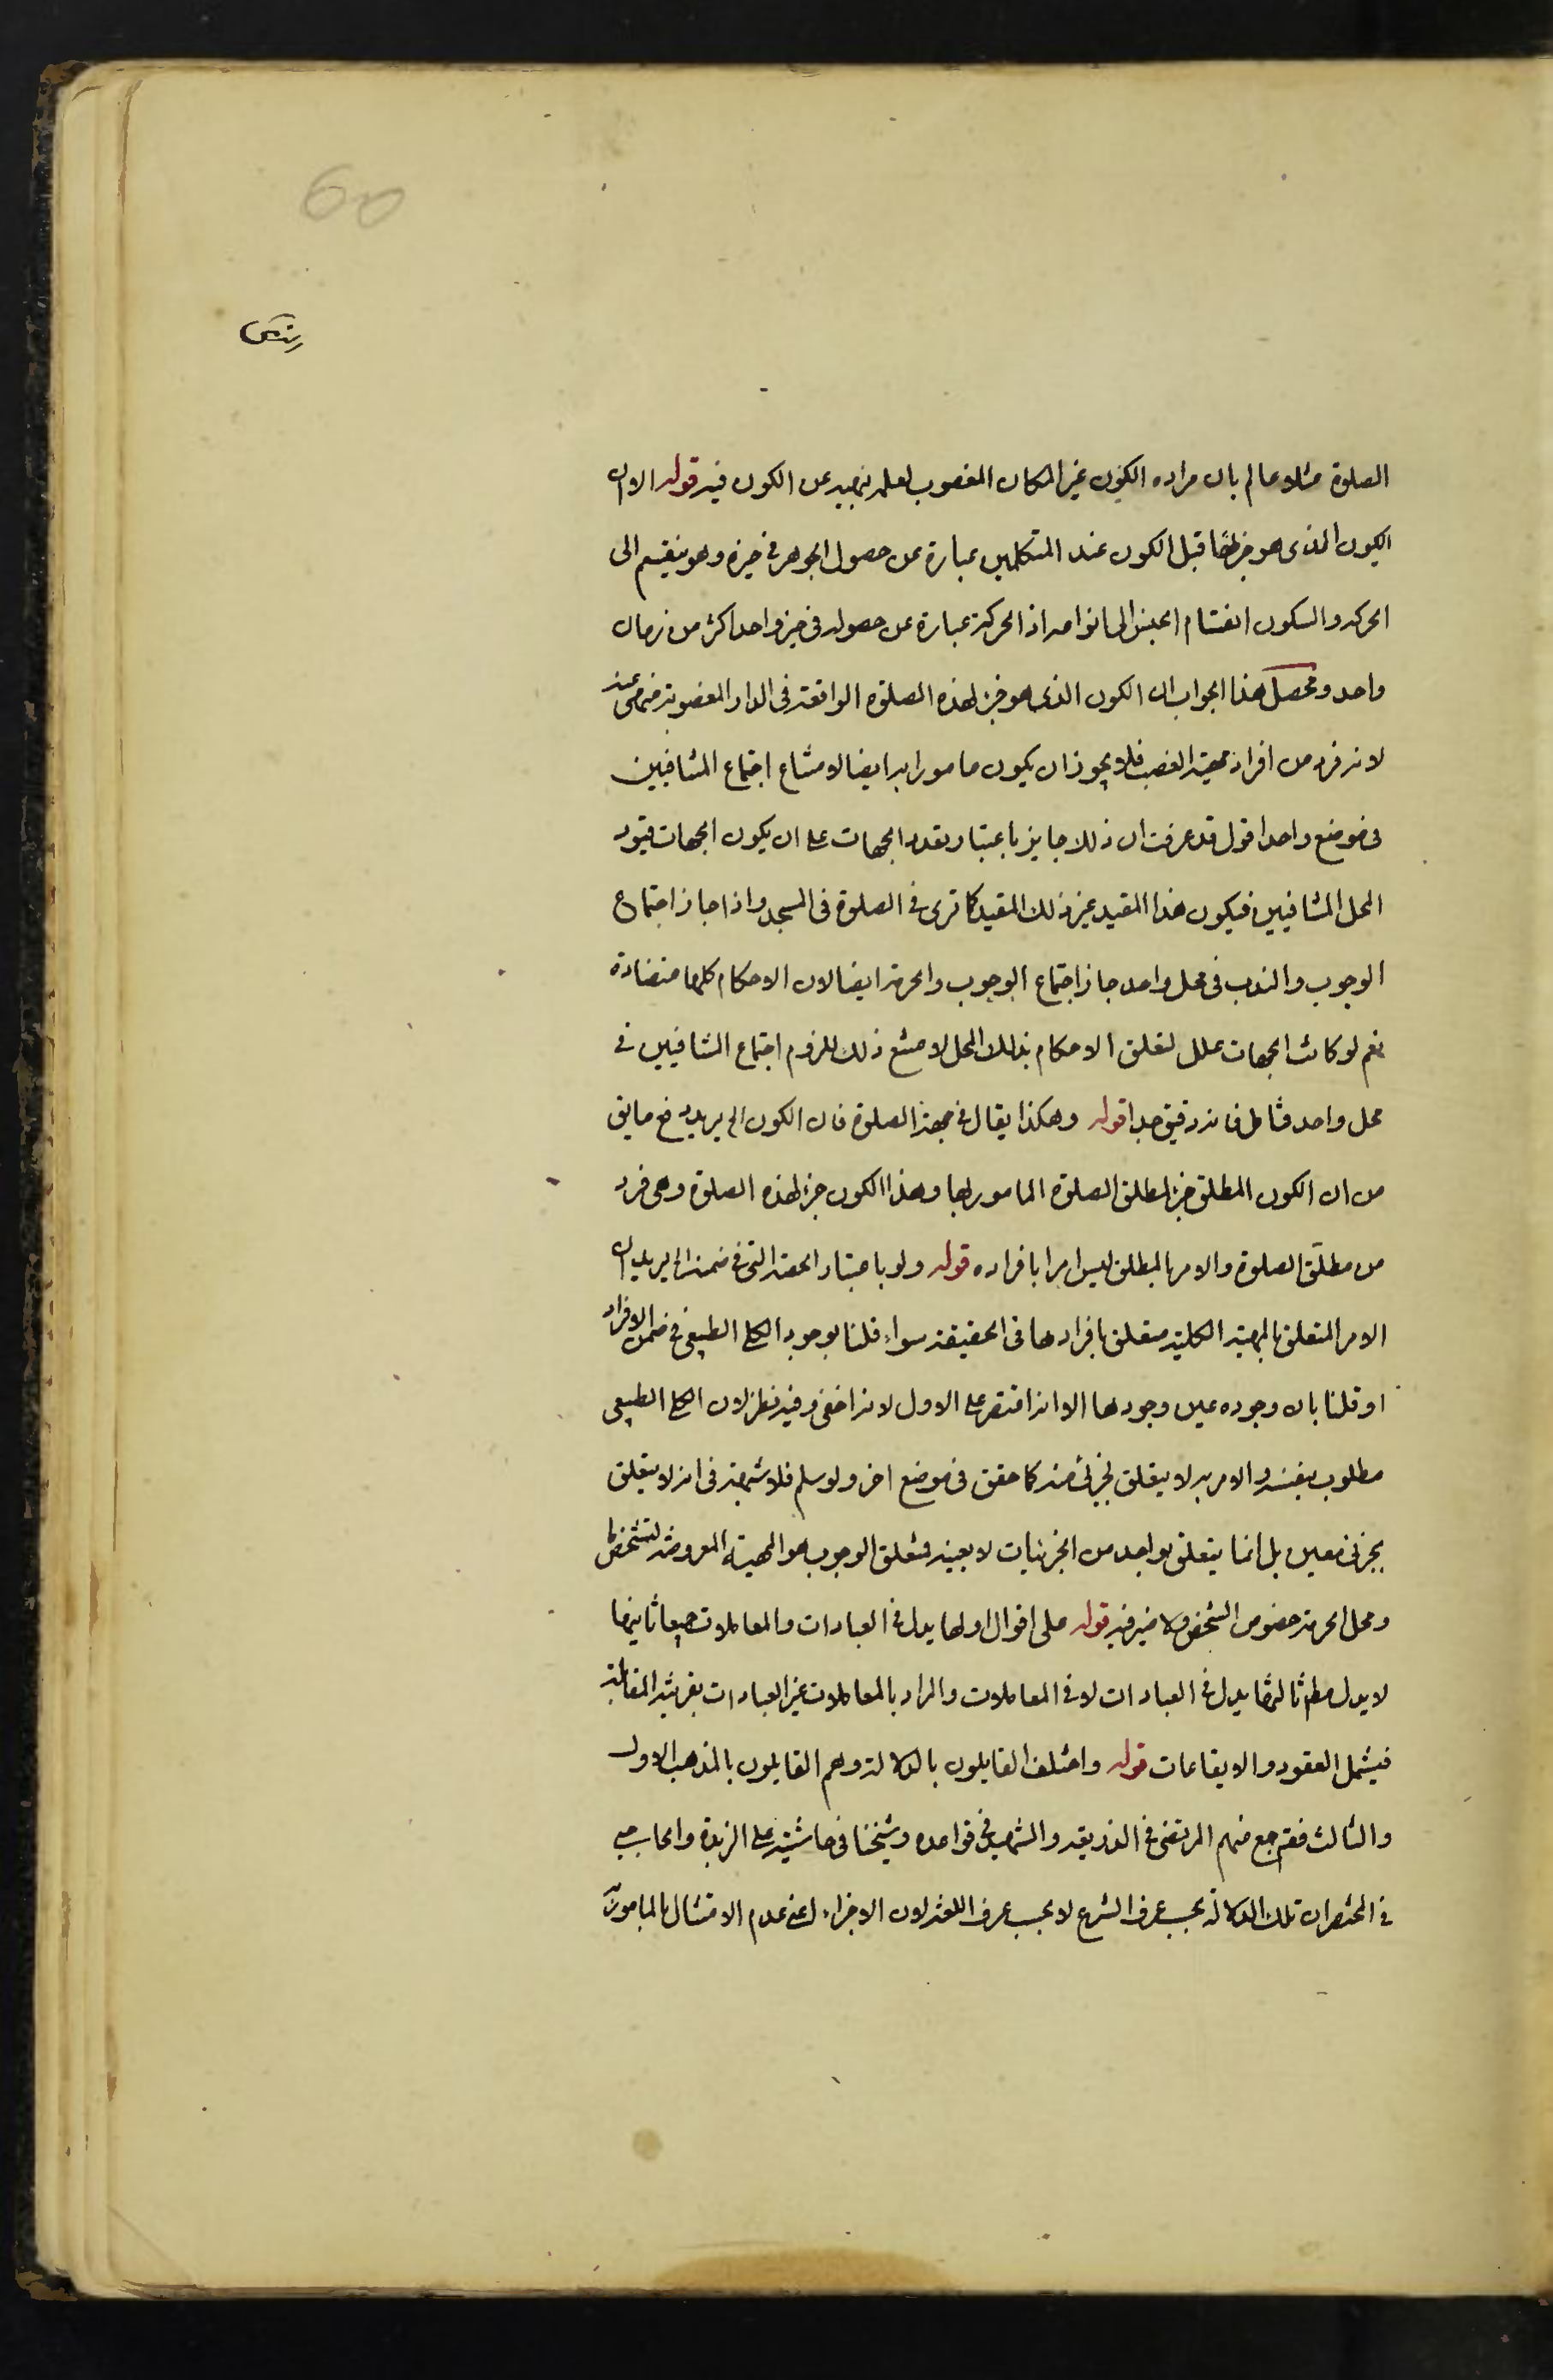 60
الصلوة مثلا عالم بان مراده الكون غير المكان المغصوب لعلمه بنهيه عن الكون فيه قوله الا ان
الكون الذى هو جزئها قيل الكون عند المتكلمين عبارة عن حصول الجوهر فى حيزه وهو ينقسم الى
الحركه والسكون انقسام الجنس الى انواعه اذ الحركة عبارة عن حصوله فى حيز واحد اكثر من زمان
واحد ومحصل هذا الجواب ان الكون الذى هو جزء لهذه الصلوة الواقعة فى الدار المغصوبة منهى عنه
لانه فرد من افراد مهية الغصب فلا يجوز ان يكون مامورا به ايضا لامتناع اجتماع المتنافيين
فى موضع واحد اقول قد عرفت ان ذلك جايز باعتبار تعدد الجهات على ان يكون الجهات قيود
المحل المتنافيين فيكون هذا المقيد غير ذلك المقيد كما ترى فى الصلوة فى المسجد واذا جاز اجتماع
الوجوب والندب فى محل واحد جاز اجتماع الوجوب والحرمة ايضا لان الاحكام كلها متضادة
نعم لو كانت الجهات علل لتعلق الاحكام بذلك المحل لامتنع ذلك للزوم اجتماع المتنافيين فى
محل واحد فتامل فانه دقيق جدا قوله وهكذا يقال فى جهة الصلوة فان الكون الخ يريد دفع ما يق
من ان الكون المطلق جزء لمطلق الصلوة المامور بها وهذا الكون جزء لهذه الصلوة وهى فرد
من مطلق الصلوة والامر بالمطلق ليس امرا بافراده قوله ولو باعتبار الحصة التى فى ضمنه الخ يريد ان
الامر المتعلق بالمهية الكلية متعلق بافرادها فى الحقيقة سواء قلنا بوجود الكلى الطبيعى فى ضمن الافراد
او قلنا بان وجوده عين وجودها الا انه اقتصر على الاول لانه اخفى وفيه نظر لان الكلى الطبيعى
مطلوب بنفسه والامر به لا يتعلق بجزئى منه كما حقق فى موضع اخر ولو سلم فلا شبهة فى انه لا يتعلق
بجزئى معين بل انما يتعلق بواحد من الجزئيات لا بعينه فمتعلق الوجوب هو المهية المعروضة لتشخص ما
ومحل الحرمة خصوص الشخص ولا ضير فيه قوله على اقوال اولها يدل فى العبادات والمعاملات جميعا ثانيها
لا يدل مطم ثالثها يدل فى العبادات لا فى المعاملات والمراد بالمعاملات غير العبادات بقرينة المقابلة
فيشمل العقود والايقاعات قوله واختلف القايلون بالدلالة وهم القايلون بالمذهب الاول
والثالث فقم جمع منهم المرتضى فى الذريعه والشهيد فى قواعده وشيخنا فى حاشيته على الزبدة والحاجبى
فى المختصر ان تلك الدلالة بحسب عرف الشرع لا بحسب عرف اللغة لان الاجزاء اعنى عدم الامتثال بالمامور به